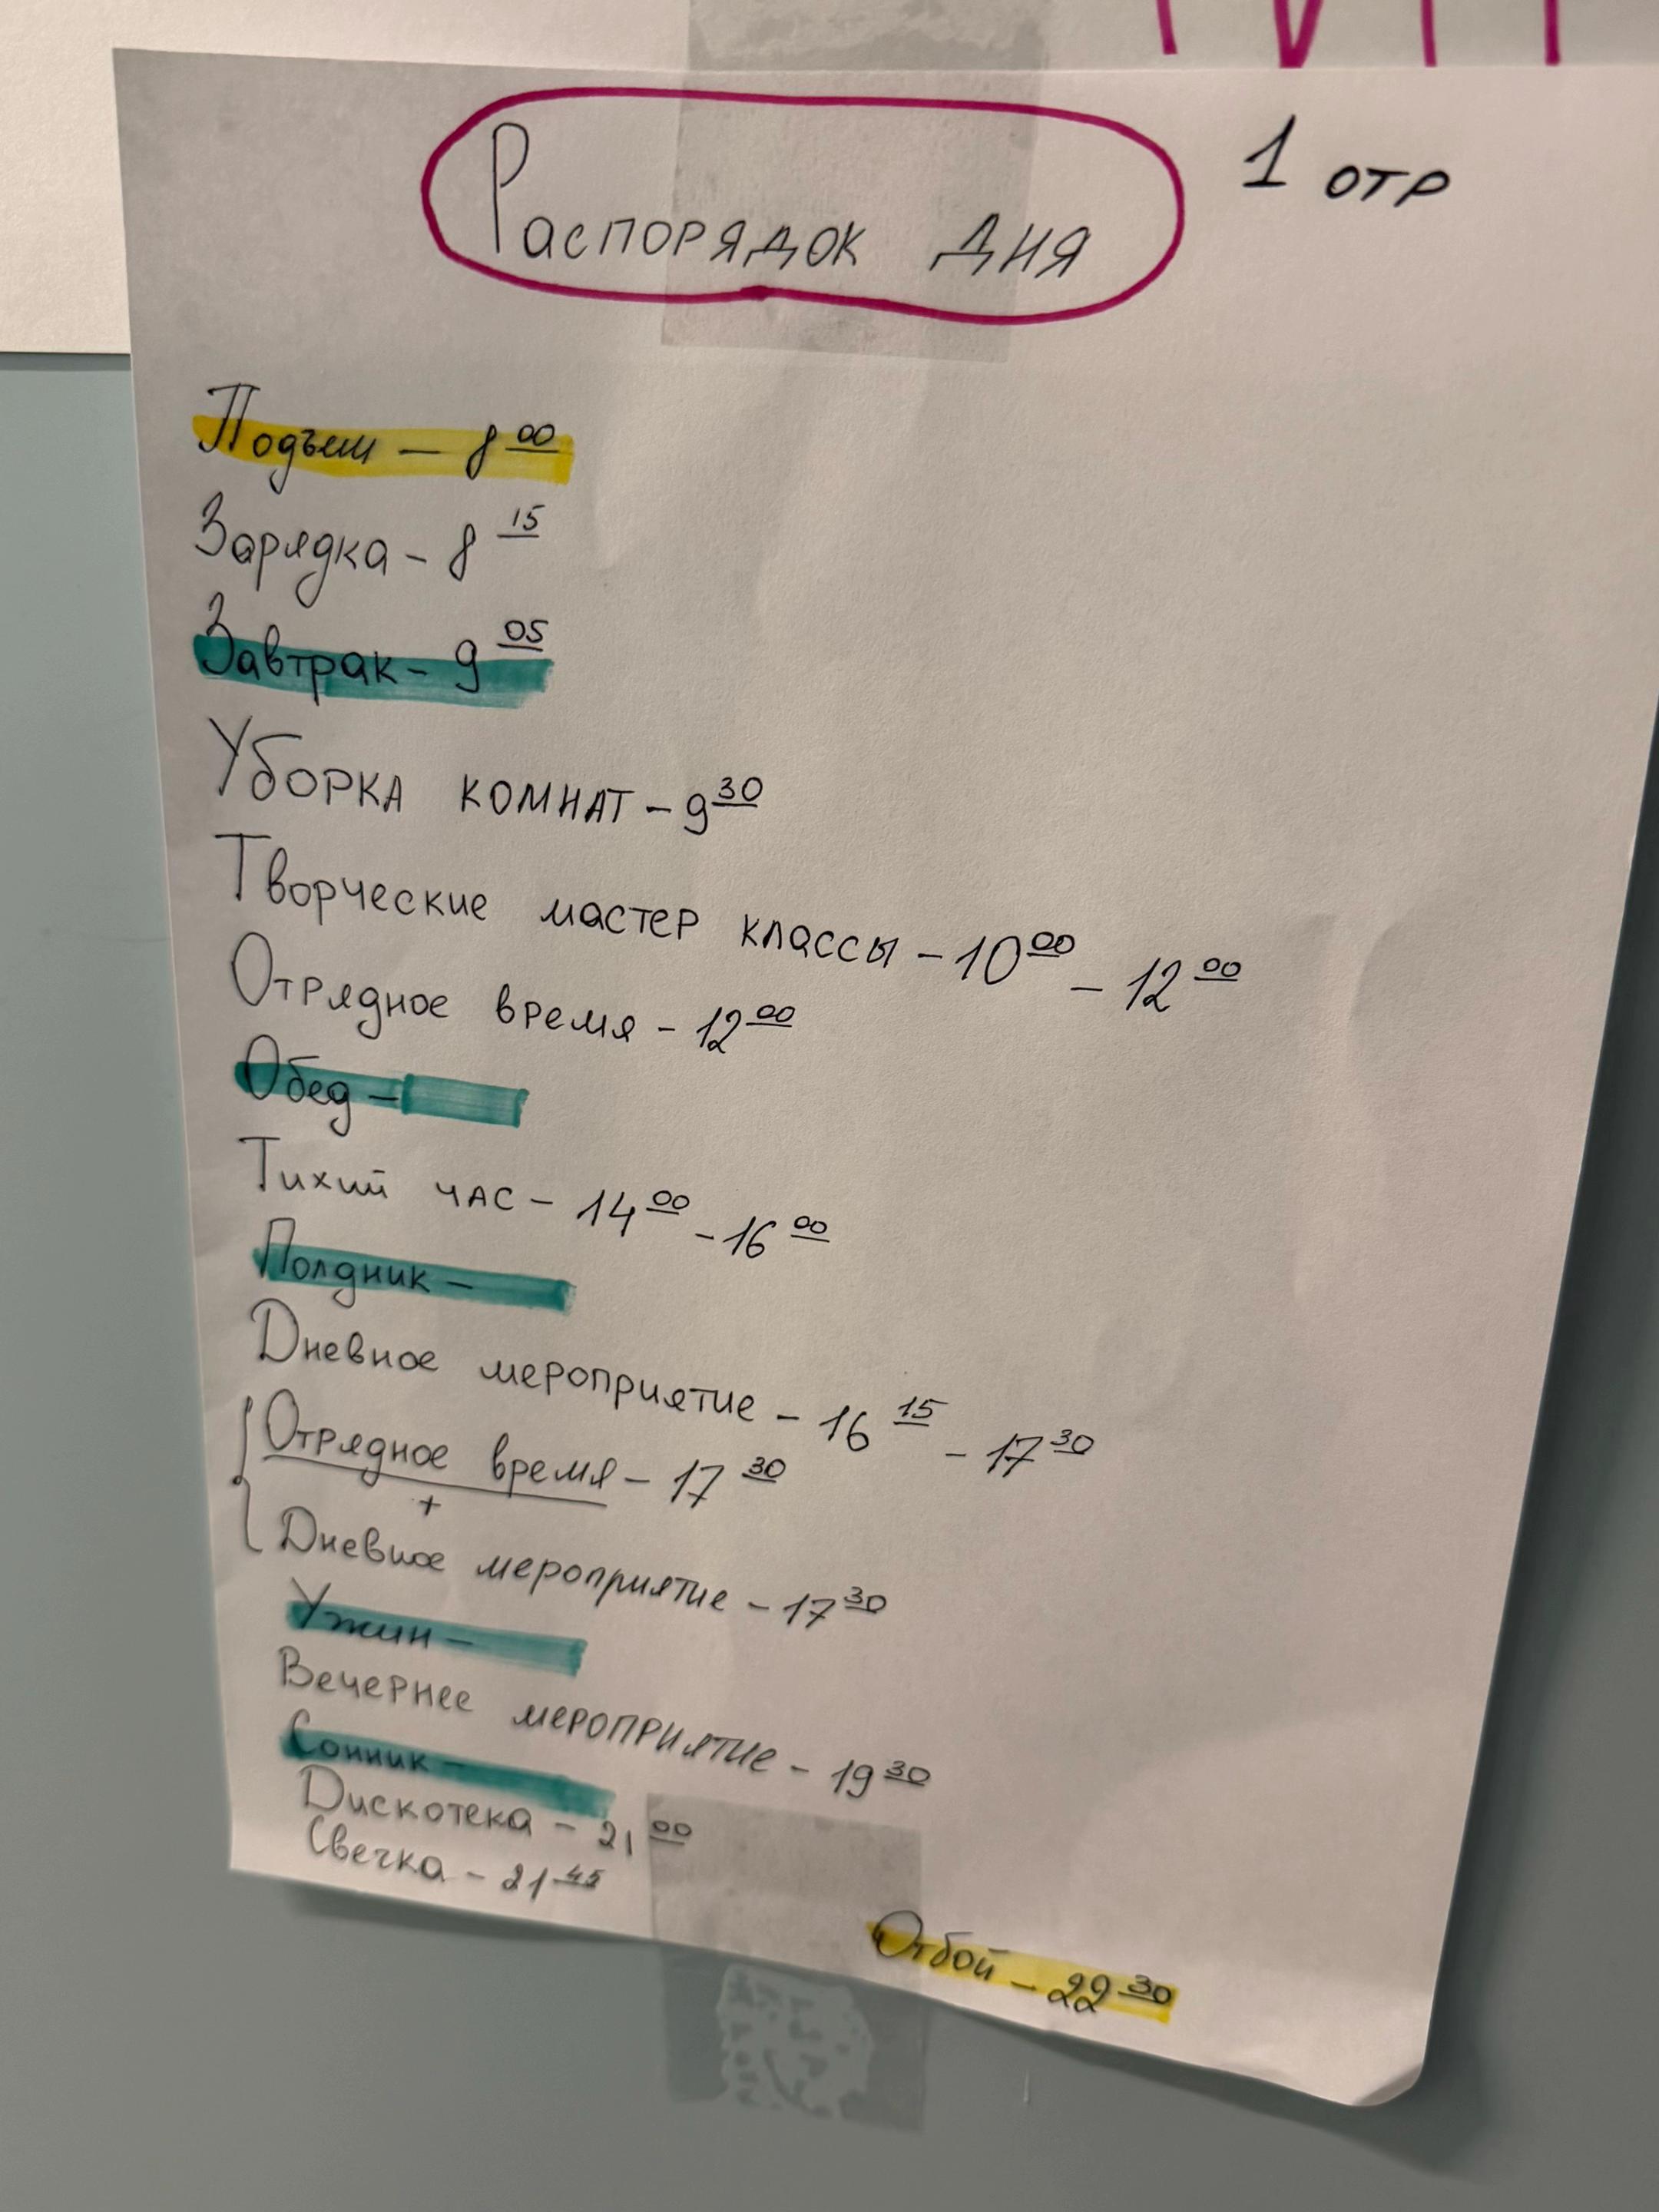 Распорядок дня
1 отр
Подъем - 8 00
Зарядка - 8 15
Завтрак - 9 05
Уборка комнат - 9 30
Творческие мастер классы - 10 00 - 12 00
Отрядное время - 12 00
Обед -
Тихий час - 14 00 - 16 00
Полдник -
Дневное мероприятие - 16 15 - 17 30
Отрядное время - 17 30
+
Дневное мероприятие - 17 30
Ужин -
Вечернее мероприятие - 19 30
Сонник -
Дискотека - 21 00
Свечка - 21 45
Отбой - 22 30